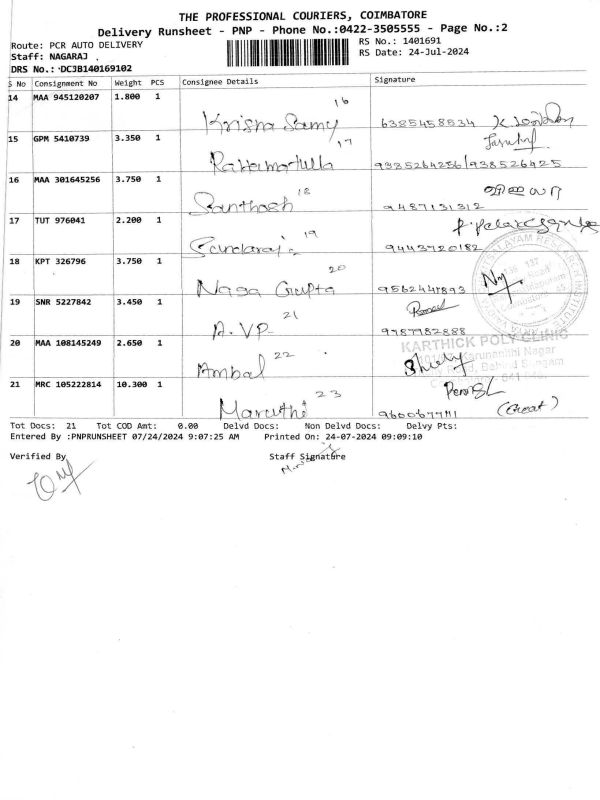 THE PROFESSIONAL COURIERS, COIMBATORE
Delivery Runsheet - PNP - Phone No.:0422-3505555 - Page No.:2
Route: PCR AUTO DELIVERY
RS No.: 1401691
Staff: NAGARAJ .
RS Date: 24-Jul-2024
DRS No.: DCJB140169102
S No Consignment No Weight PCS Consignee Details Signature
14 MAA 945120207 1.800 1 16
Krishna Samy 6385458534
15 GPM 5410739 3.350 1 17
9385264256/938526425
16 MAA 301645256 3.750 1 18
Santhosh 9487131312
17 TUT 976041 2.200 1 19
9443720182
18 KPT 326796 3.750 1 20
Naga Gupta
19 SNR 5227842 3.450 1 21
A.VP. 9787782888
20 MAA 108145249 2.650 1 22
Ambal
KARTHICK POLY CLINIC
Karunanithi Nagar
21 MRC 105222814 10.300 1 23
Maruthi
Tot Docs: 21 Tot COD Amt: 0.00 Delvd Docs: Non Delvd Docs: Delvy Pts:
Entered By :PNPRUNSHEET 07/24/2024 9:07:25 AM Printed On: 24-07-2024 09:09:10
Verified By Staff Signature